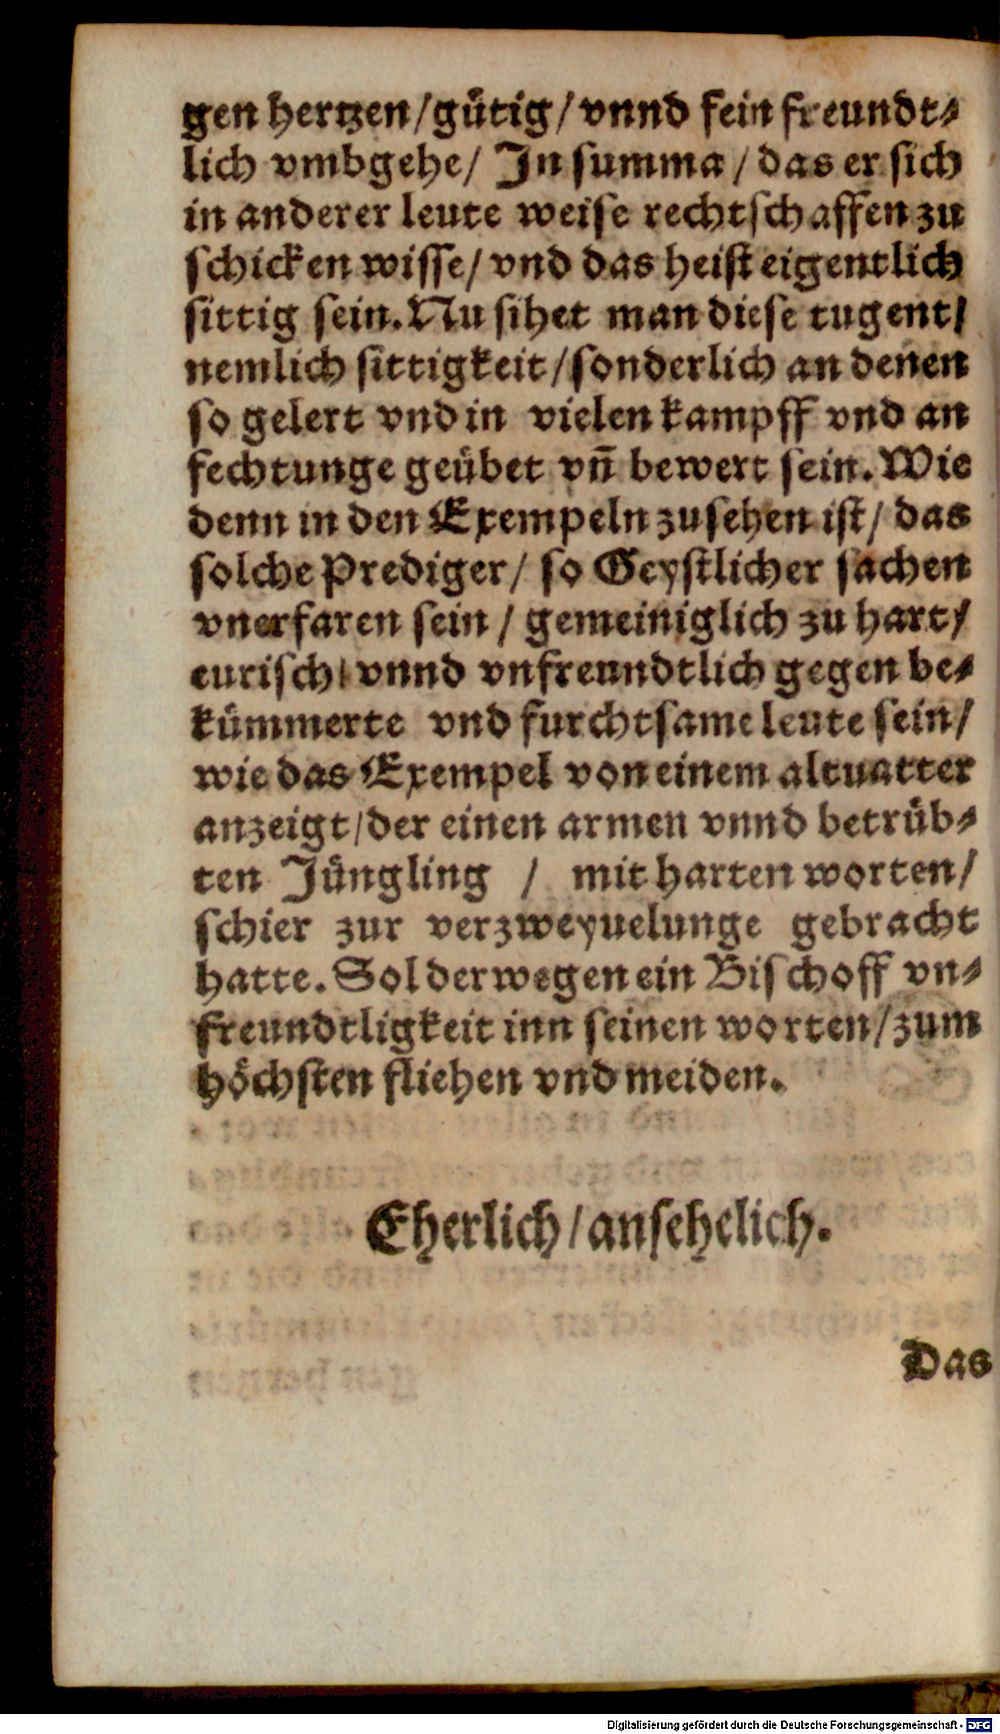 gen hertzen/gütig/vnnd fein freundt⸗
lich vmbgehe/ In summa/das er sich
in anderer leute weise rechtschaffen zu
schicken wisse/vnd das heist eigentlich
sittig sein. Nu sihet man diese tugent/
nemlich sittigkeit/sonderlich an denen
so gelert vnd in vielen kampff vnd an
fechtunge geübet vn̄ bewert sein. Wie
denn in den Exempeln zusehen ist/ das
solche Prediger/ so Geystlicher sachen
vnerfaren sein/ gemeiniglich zu hart/
eurisch/vnnd vnfreundtlich gegen be⸗
kümmerte vnd furchtsame leute sein/
wie das Exempel von einem altuatter
anzeigt/der einen armen vnnd betrüb⸗
ten Jüngling / mit harten worten/
schier zur verzweyuelunge gebracht
hatte. Sol derwegen ein Bischoff vn⸗
freundtligkeit inn seinen worten/zum
höchsten fliehen vnd meiden.
Eherlich/ansehelich.
Das
Digitalisierung gefördert durch die Deutsche Forschungsgemeinschaft - DFG